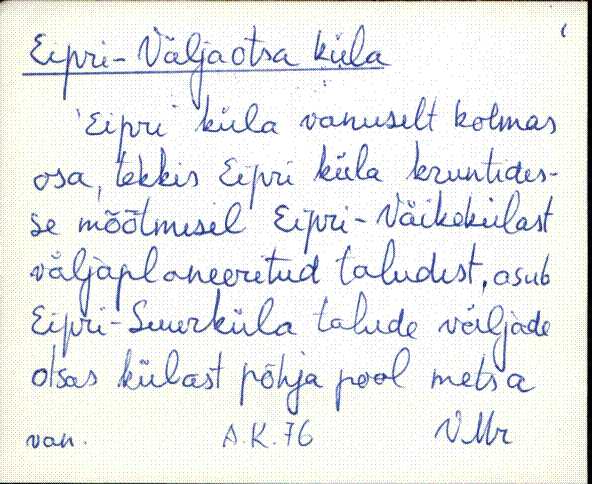 Eipri-Väljaotsa küla
'Eipri küla vanuselt kolmas
osa, tekkis Eipri küla kruntides-
se mõõtmisel Eipri-Väikekülast
väljaplaneeritud taludest, asub
Eipri-Suurküla talude väljade
otsas külast põhja pool metsa
van. A.K.76 VMr